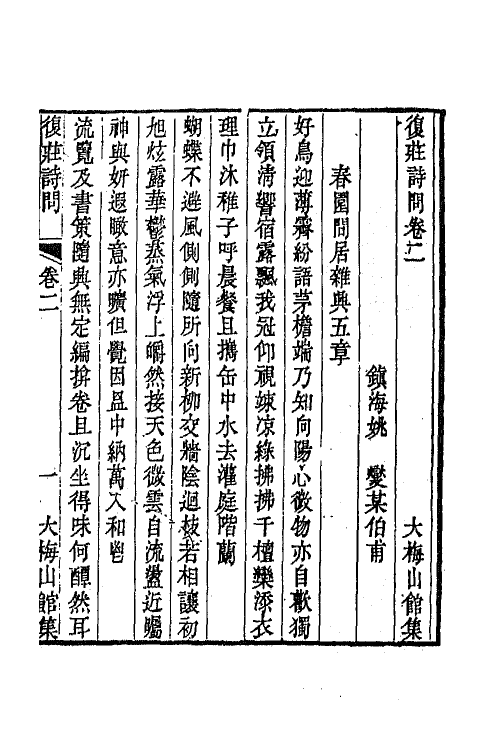 復莊詩問卷二　大梅山館集
鎮海姚　燮某伯甫
春園閒居雜興五章
好鳥迎薄霽紛語茅檐端乃知向陽心微物亦自歡獨
立領淸響宿露飄我冠仰視竦凉綠拂拂千檀欒添衣
理巾沐稚子呼晨餐且攜缶中水去灌庭階蘭
蝴蝶不避風側側隨所向新柳交牆陰迴枝若相讓初
旭炫露華鬱蒸氣浮上皭然接天色微雲自流盪近矚
神與妍遐瞰意亦曠但覺因昷中納萬入和鬯
流覽及書策隨興無定編掩卷且沉坐得味何醰然耳
復莊詩問　卷二　一　大梅山館集